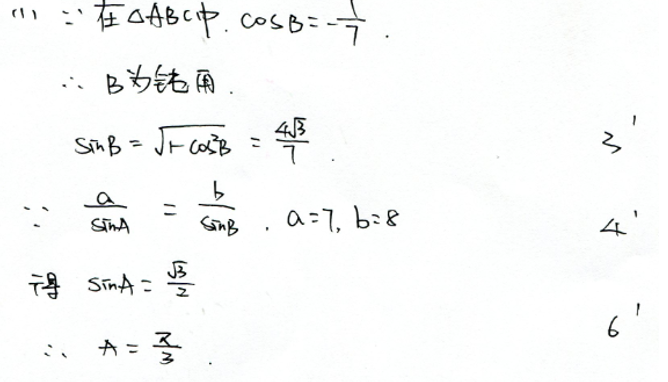 (1) ∵在△ABC中. cosB=-1/7.
∴ B为钝角.
sinB=√(1-cos²B) = 4√3/7. 3'
∵ a/sinA = b/sinB. a=7, b=8 4'
得 sinA=√3/2
∴ A=π/3. 6'